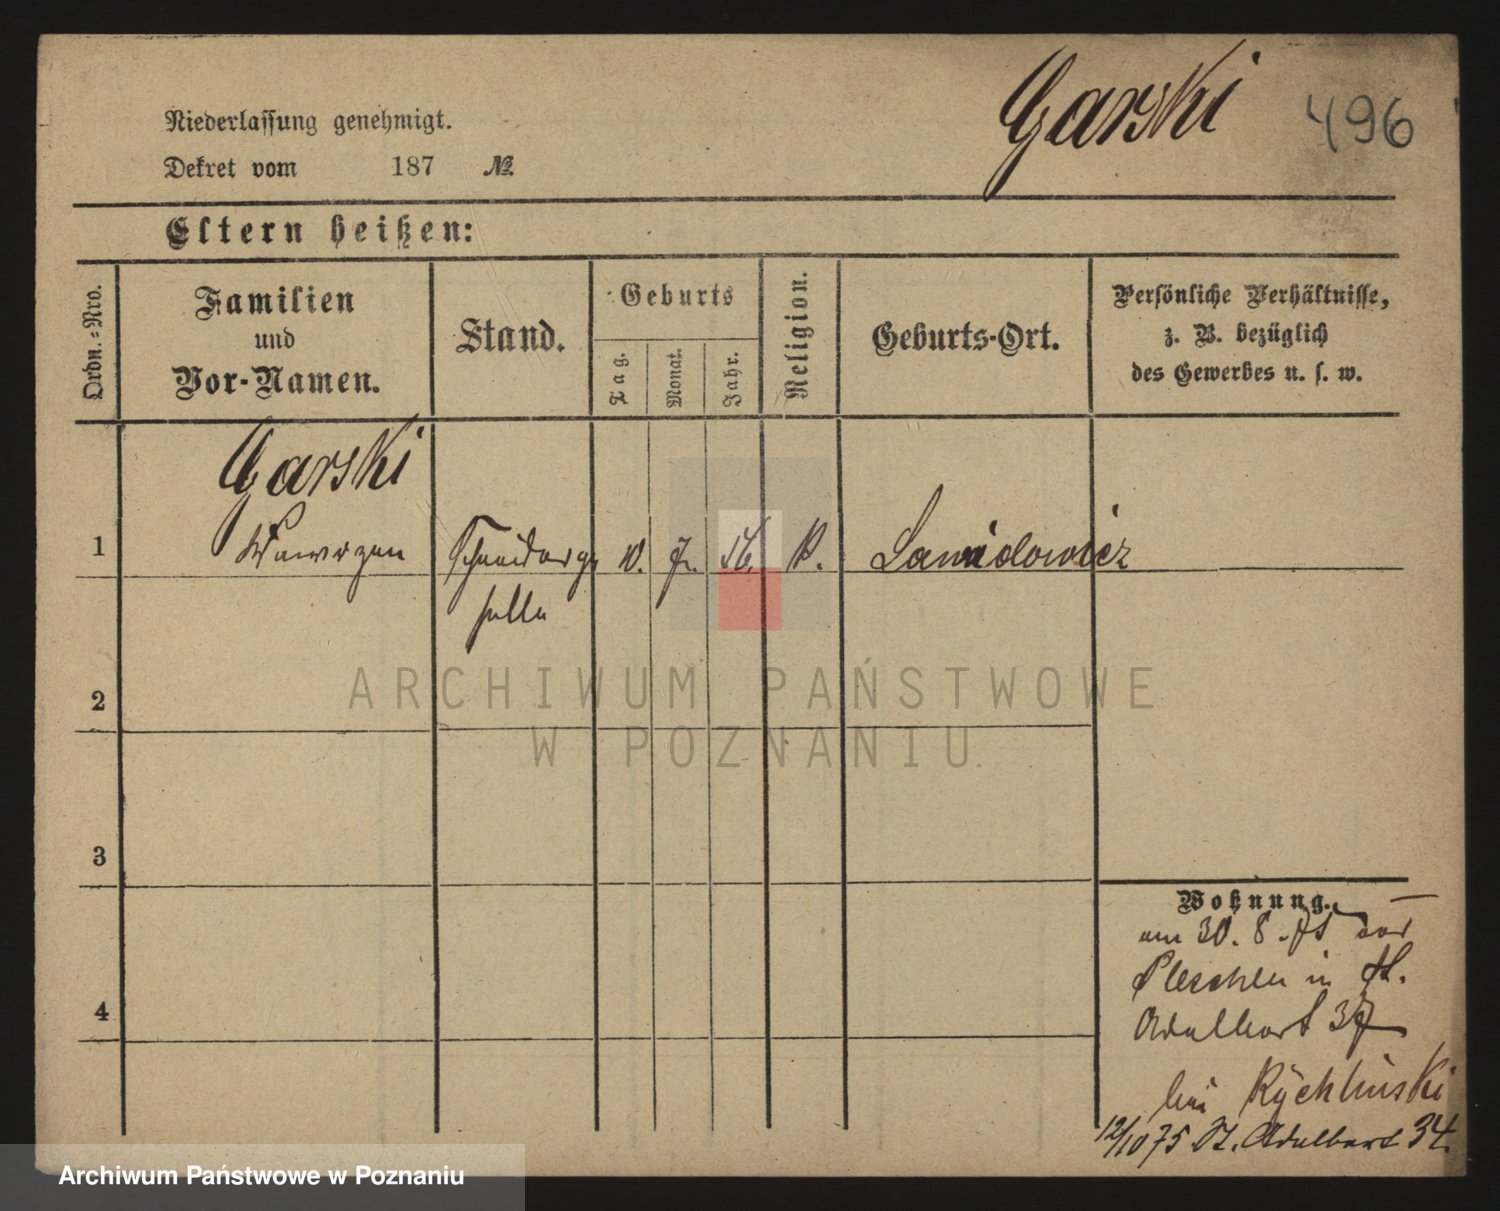 Garski 496
Niederlassung genehmigt.
Dekret vom 187 №.
Eltern heißen:
Ordn.-Nro.
Familien
und
Vor-Namen.
Stand.
Geburts
Tag.
Monat.
Jahr.
Religion.
Geburts-Ort.
Persönliche Verhältnisse,
z. B. bezüglich
des Gewerbes u. s. w.
Garski
1 Wawrzyn Schneiderge K.
selle
2
3
4
Wohnung.
am 30. 8. 75 aus
Pleschen in St.
Adalbert 37
bei Rychlinski
12/10 75 St. Adalbert 34.
ARCHIWUM PAŃSTWOWE
W POZNANIU
Archiwum Państwowe w Poznaniu